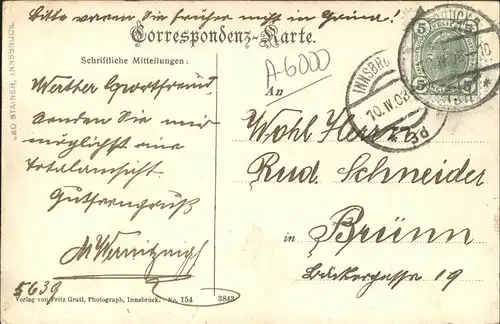 Bitte waren Sie früher nicht in Grünn!
Correspondenz-Karte.
Schriftliche Mitteilungen:
A-6000
An
LEO STAINER, INNSBRUCK
Werther Sportfreund,
senden Sie mir
möglichst eine
Totalansicht.
Gutferngruß
Wohl. Herrn
Rud. Schneider
in Brünn
Bäckergasse 19
INNSBRU
10.IV.08
5
5
5639
Verlag von Fritz Gratl, Photograph, Innsbruck. - No. 154
3843